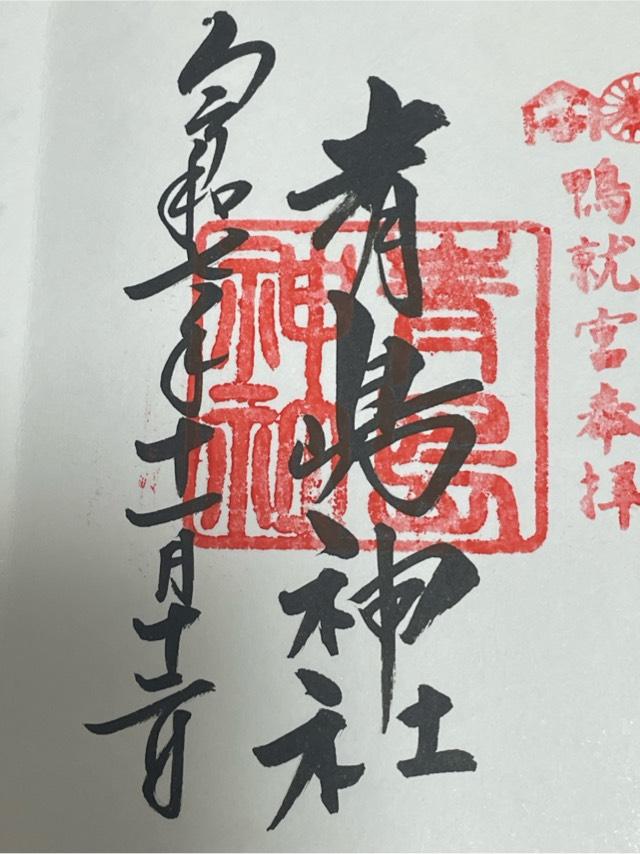 鴨就宮奉拝
青嶋神社
青島
神社
令和七年十一月十二日